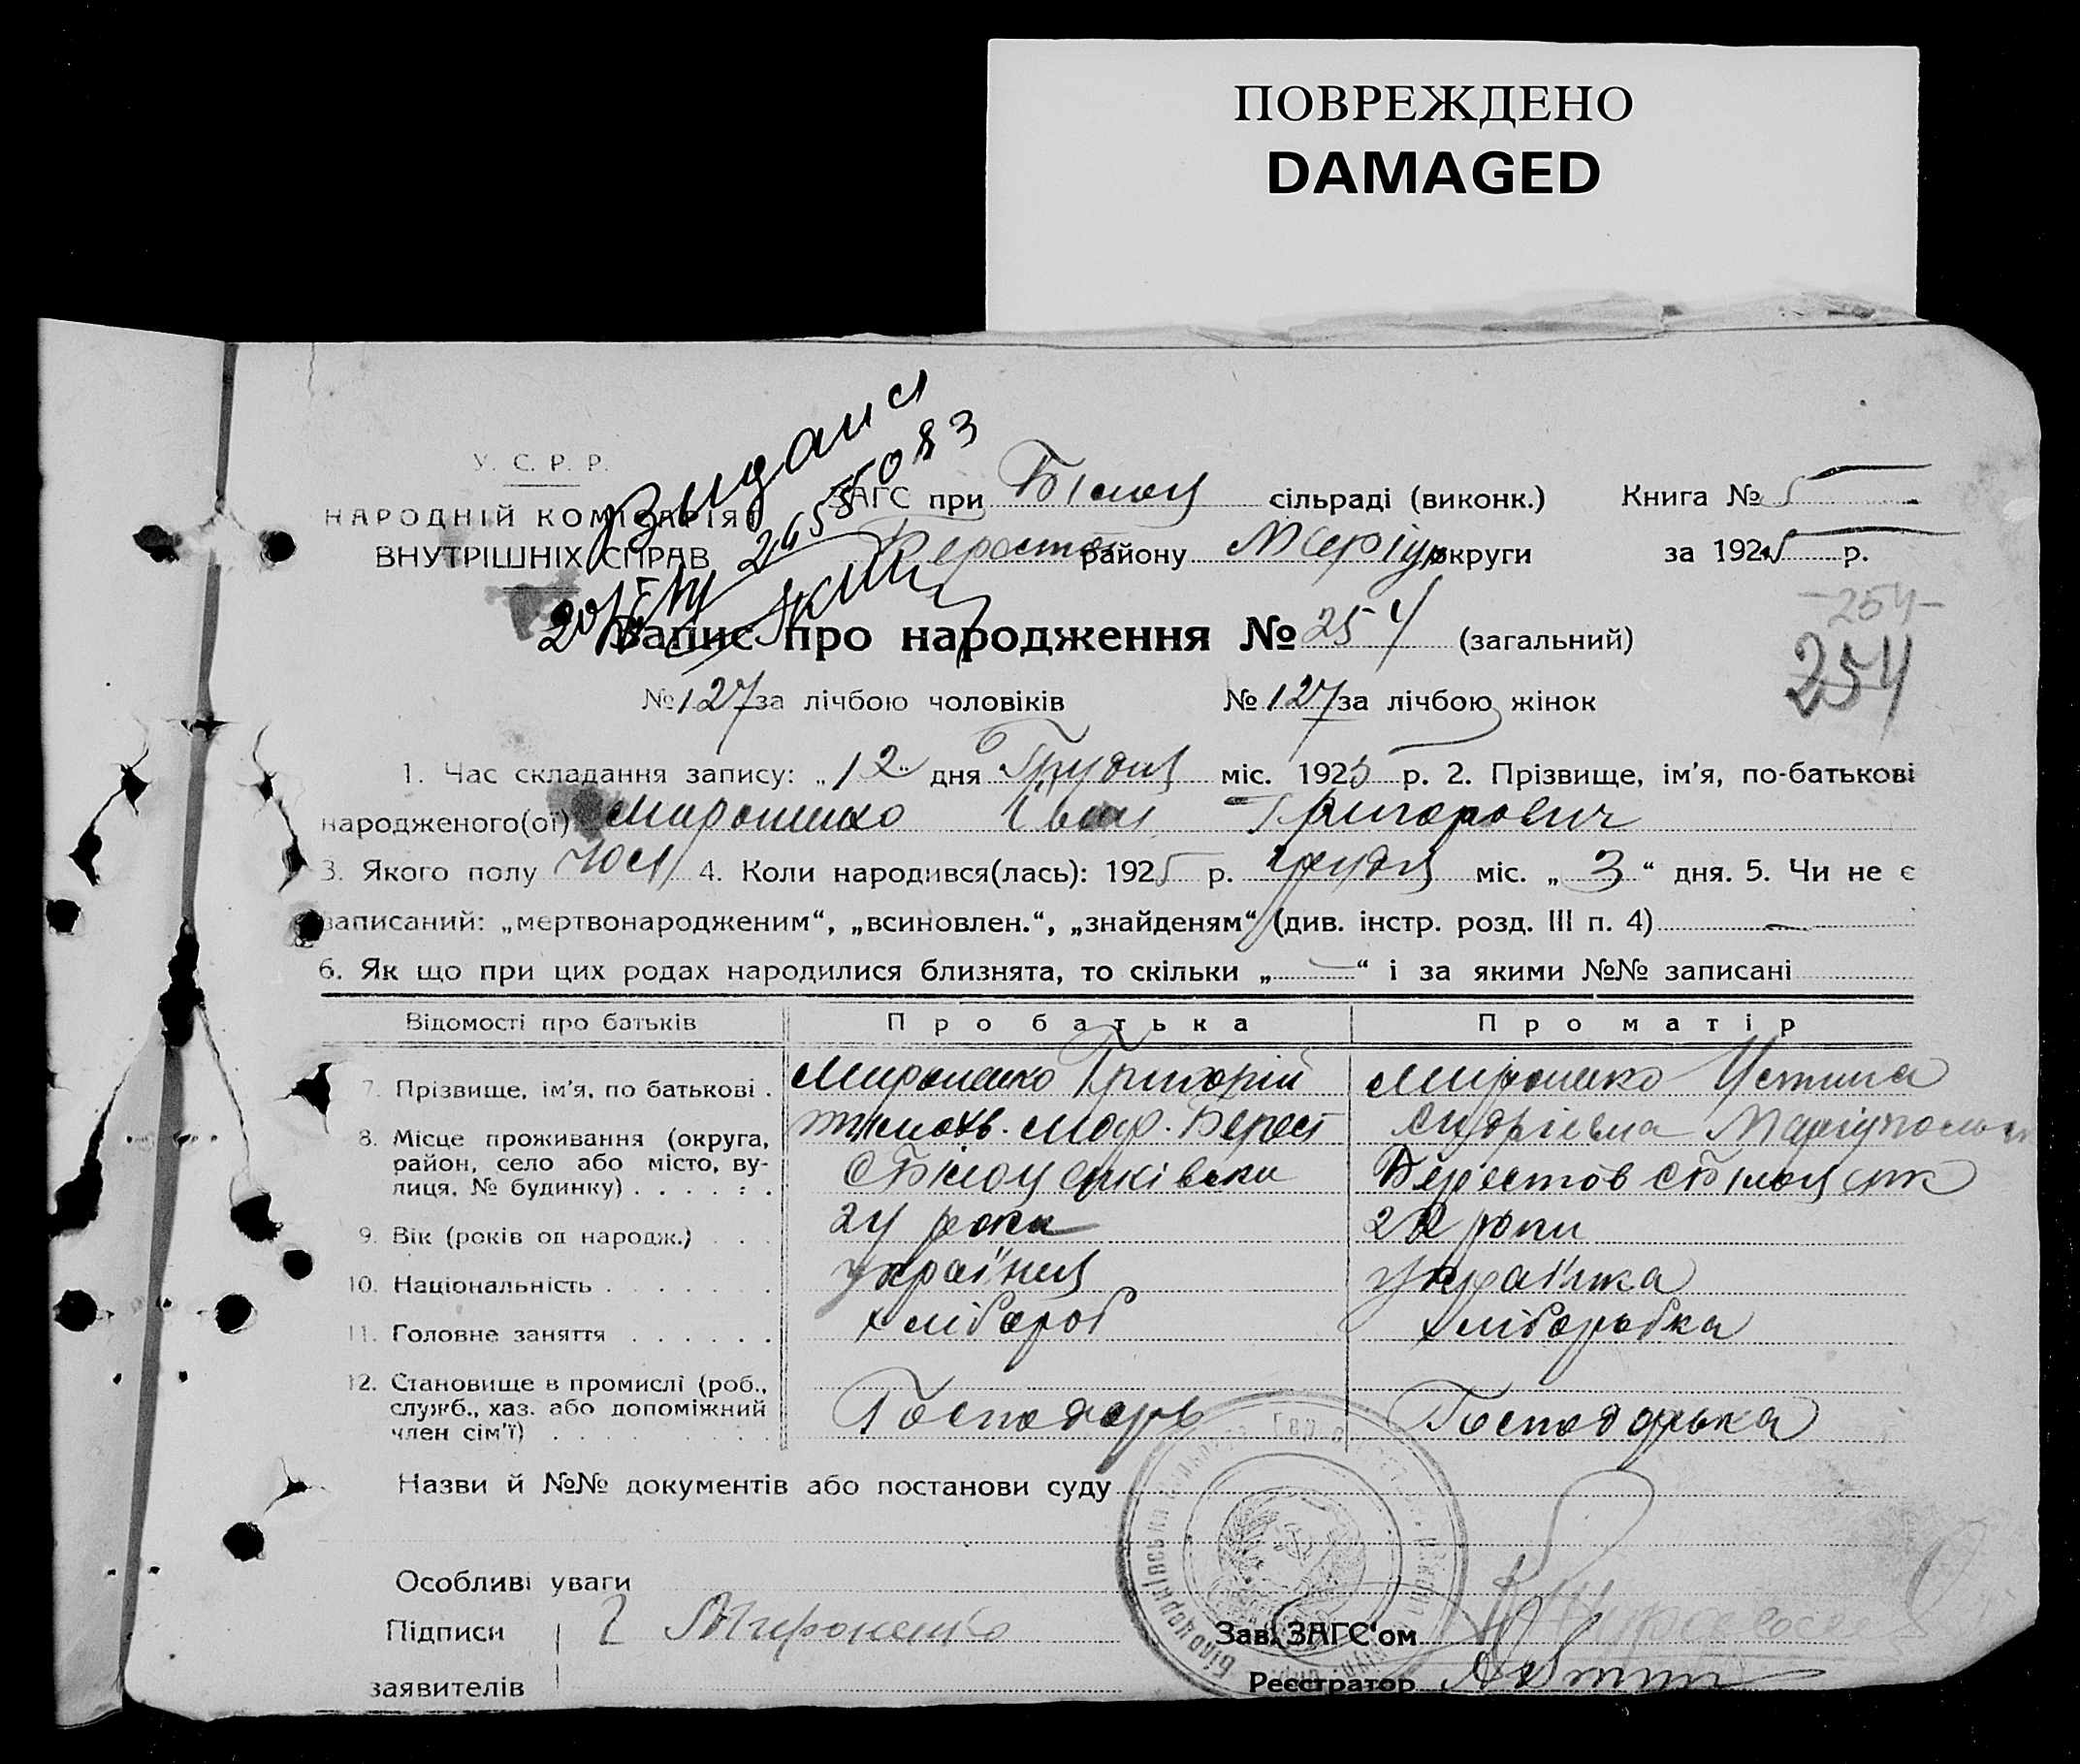 ПОВРЕЖДЕНО
DAMAGED
У. С. Р. Р.
НАРОДНІЙ КОМІСАРІЯТ
ВНУТРІШНІХ СПРАВ
Видано
ЗАГС при сільраді (виконк.) Книга № 5
району Маріуп округи за 1925 р.
Запис про народження № 254 (загальний)
254
254
№ 127 за лічбою чоловіків № 127 за лічбою жінок
1. Час складання запису: „12" дня Грудня міс. 1925 р. 2. Прізвище, ім'я, по-батькові
народженого(ої) Мирошенко Іван Григорович
3. Якого полу 4. Коли народився(лась): 1925 р. грудня міс. „3" дня. 5. Чи не є
записаний: „мертвонародженим", „всиновлен.", „знайденям" (див. інстр. розд. III п. 4)
6. Як що при цих родах народилися близнята, то скільки „—" і за якими №№ записані
Відомості про батьків Про батька Про матір
7. Прізвище, ім'я, по батькові . Мирошенко Григорій Мирошенко Устина
8. Місце проживання (округа, район, село або місто, вулиця, № будинку) Тимохв. Мар. Берест Андріевна Маріупольск
С Білоцерківськи Берестов с Білоцерк
9. Вік (років од народж.) 24 роки 22 роки
10. Національність українця українка
11. Головне заняття хлібороб хліборобка
12. Становище в промислі (роб., служб., хаз. або допоміжний член сім'ї) Господарь Господарька
Назви й №№ документів або постанови суду
Особливі уваги
Підписи Г Мирошенко Зав. ЗАГС'ом
заявителів Реєстратор